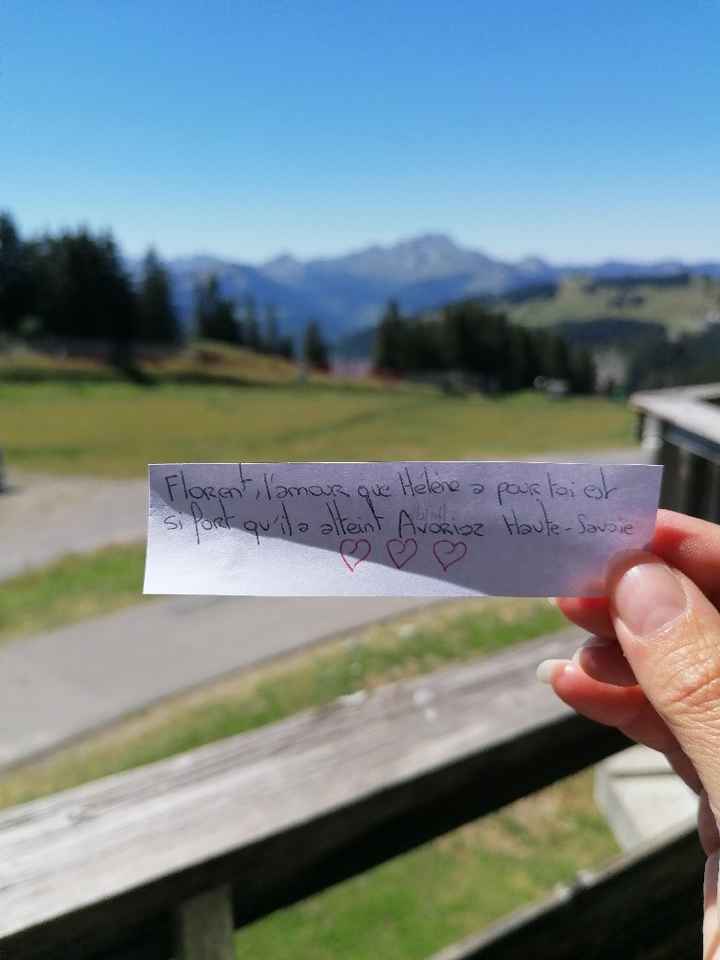 Florent, l'amour que Helène a pour toi est
si fort qu'il a atteint Avoriaz Haute-Savoie